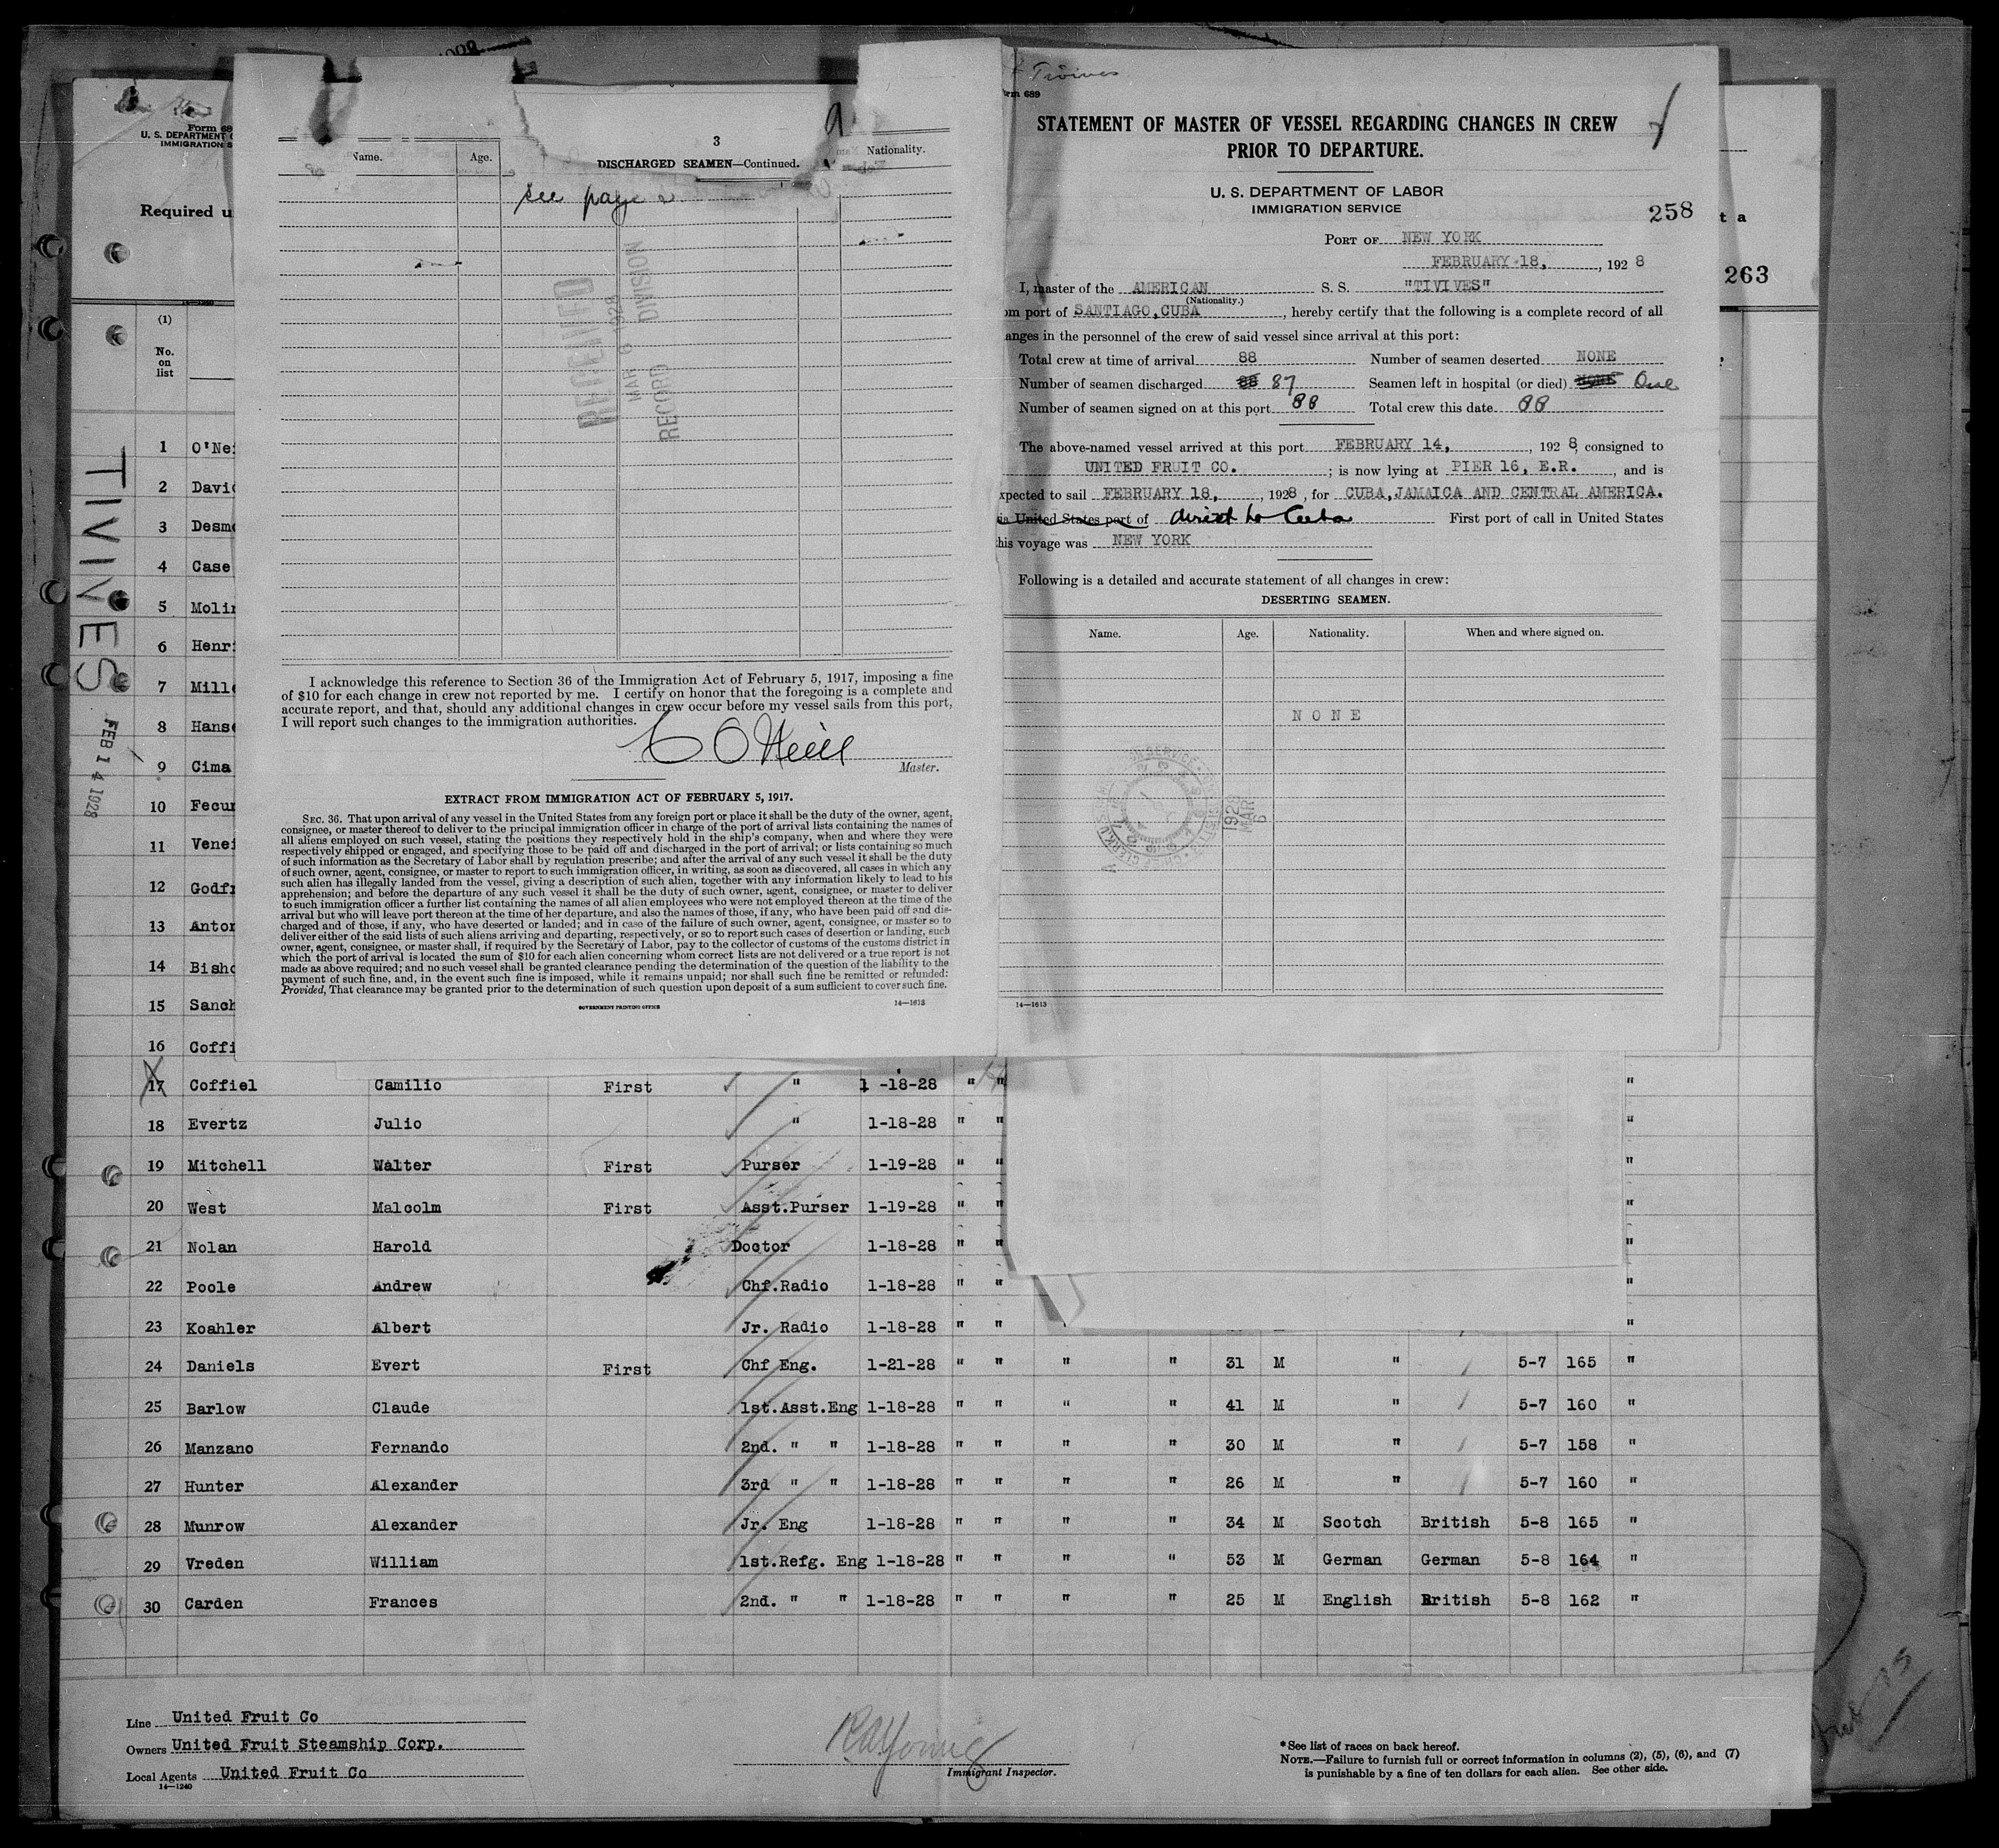 Tivives
Form 689
STATEMENT OF MASTER OF VESSEL REGARDING CHANGES IN CREW
PRIOR TO DEPARTURE.
U. S. DEPARTMENT OF LABOR
IMMIGRATION SERVICE
258
PORT OF NEW YORK
FEBRUARY 18, , 1928
I, master of the AMERICAN S. S. "TIVIVES"
(Nationality.)
om port of SANTIAGO,CUBA , hereby certify that the following is a complete record of all
anges in the personnel of the crew of said vessel since arrival at this port:
Total crew at time of arrival 88 Number of seamen deserted NONE
Number of seamen discharged 88 87 Seamen left in hospital (or died) NONE One
Number of seamen signed on at this port 88 Total crew this date 88
The above-named vessel arrived at this port FEBRUARY 14, , 1928, consigned to
UNITED FRUIT CO. ; is now lying at PIER 16, E.R. , and is
xpected to sail FEBRUARY 18, , 1928, for CUBA,JAMAICA AND CENTRAL AMERICA.
ia United States port of direct to Cuba First port of call in United States
his voyage was NEW YORK
Following is a detailed and accurate statement of all changes in crew:
DESERTING SEAMEN.
Name. Age. Nationality. When and where signed on.
NONE
1928 MAR 6
14—1613
3
DISCHARGED SEAMEN—Continued.
Name. Age. Nationality.
see page 2
RECEIVED
MAR 6 1928
RECORD DIVISION
I acknowledge this reference to Section 36 of the Immigration Act of February 5, 1917, imposing a fine
of $10 for each change in crew not reported by me. I certify on honor that the foregoing is a complete and
accurate report, and that, should any additional changes in crew occur before my vessel sails from this port,
I will report such changes to the immigration authorities.
C O'Neill
Master.
EXTRACT FROM IMMIGRATION ACT OF FEBRUARY 5, 1917.
SEC. 36. That upon arrival of any vessel in the United States from any foreign port or place it shall be the duty of the owner, agent,
consignee, or master thereof to deliver to the principal immigration officer in charge of the port of arrival lists containing the names of
all aliens employed on such vessel, stating the positions they respectively hold in the ship's company, when and where they were
respectively shipped or engaged, and specifying those to be paid off and discharged in the port of arrival; or lists containing so much
of such information as the Secretary of Labor shall by regulation prescribe; and after the arrival of any such vessel it shall be the duty
of such owner, agent, consignee, or master to report to such immigration officer, in writing, as soon as discovered, all cases in which any
such alien has illegally landed from the vessel, giving a description of such alien, together with any information likely to lead to his
apprehension; and before the departure of any such vessel it shall be the duty of such owner, agent, consignee, or master to deliver
to such immigration officer a further list containing the names of all alien employees who were not employed thereon at the time of the
arrival but who will leave port thereon at the time of her departure, and also the names of those, if any, who have been paid off and dis-
charged and of those, if any, who have deserted or landed; and in case of the failure of such owner, agent, consignee, or master so to
deliver either of the said lists of such aliens arriving and departing, respectively, or so to report such cases of desertion or landing, such
owner, agent, consignee, or master shall, if required by the Secretary of Labor, pay to the collector of customs of the customs district in
which the port of arrival is located the sum of $10 for each alien concerning whom correct lists are not delivered or a true report is not
made as above required; and no such vessel shall be granted clearance pending the determination of the question of the liability to the
payment of such fine, and, in the event such fine is imposed, while it remains unpaid; nor shall such fine be remitted or refunded:
Provided, That clearance may be granted prior to the determination of such question upon deposit of a sum sufficient to cover such fine.
GOVERNMENT PRINTING OFFICE 14—1613
Form 68
U. S. DEPARTMENT O
IMMIGRATION S
Required u
t a
263
(1)
No. on list
TIVIVES
FEB 14 1928
1 O'Nei
2 David
3 Desmo
4 Case
5 Molin
6 Henri
7 Mille
8 Hanse
9 Cima
10 Fecun
11 Venei
12 Godfr
13 Anton
14 Bisho
15 Sanch
16 Coffi
17 Coffiel Camilio First " 1 -18-28 " " "
18 Evertz Julio " 1-18-28 " " "
19 Mitchell Walter First Purser 1-19-28 " " "
20 West Malcolm First Asst.Purser 1-19-28 " " "
21 Nolan Harold Doctor 1-18-28 " " "
22 Poole Andrew Chf.Radio 1-18-28 " " "
23 Koahler Albert Jr. Radio 1-18-28 " " "
24 Daniels Evert First Chf Eng. 1-21-28 " " " " 31 M " 5-7 165 "
25 Barlow Claude 1st.Asst.Eng 1-18-28 " " " " 41 M " 5-7 160 "
26 Manzano Fernando 2nd. " " 1-18-28 " " " " 30 M " 5-7 158 "
27 Hunter Alexander 3rd " " 1-18-28 " " " " 26 M " 5-7 160 "
28 Munrow Alexander Jr. Eng 1-18-28 " " " " 34 M Scotch British 5-8 165 "
29 Vreden William 1st.Refg. Eng 1-18-28 " " " " 53 M German German 5-8 164 "
30 Carden Frances 2nd. " " 1-18-28 " " " " 25 M English British 5-8 162 "
Line United Fruit Co
Owners United Fruit Steamship Corp.
Local Agents United Fruit Co
14—1240
R A Young
Immigrant Inspector.
*See list of races on back hereof.
NOTE.—Failure to furnish full or correct information in columns (2), (5), (6), and (7)
is punishable by a fine of ten dollars for each alien. See other side.